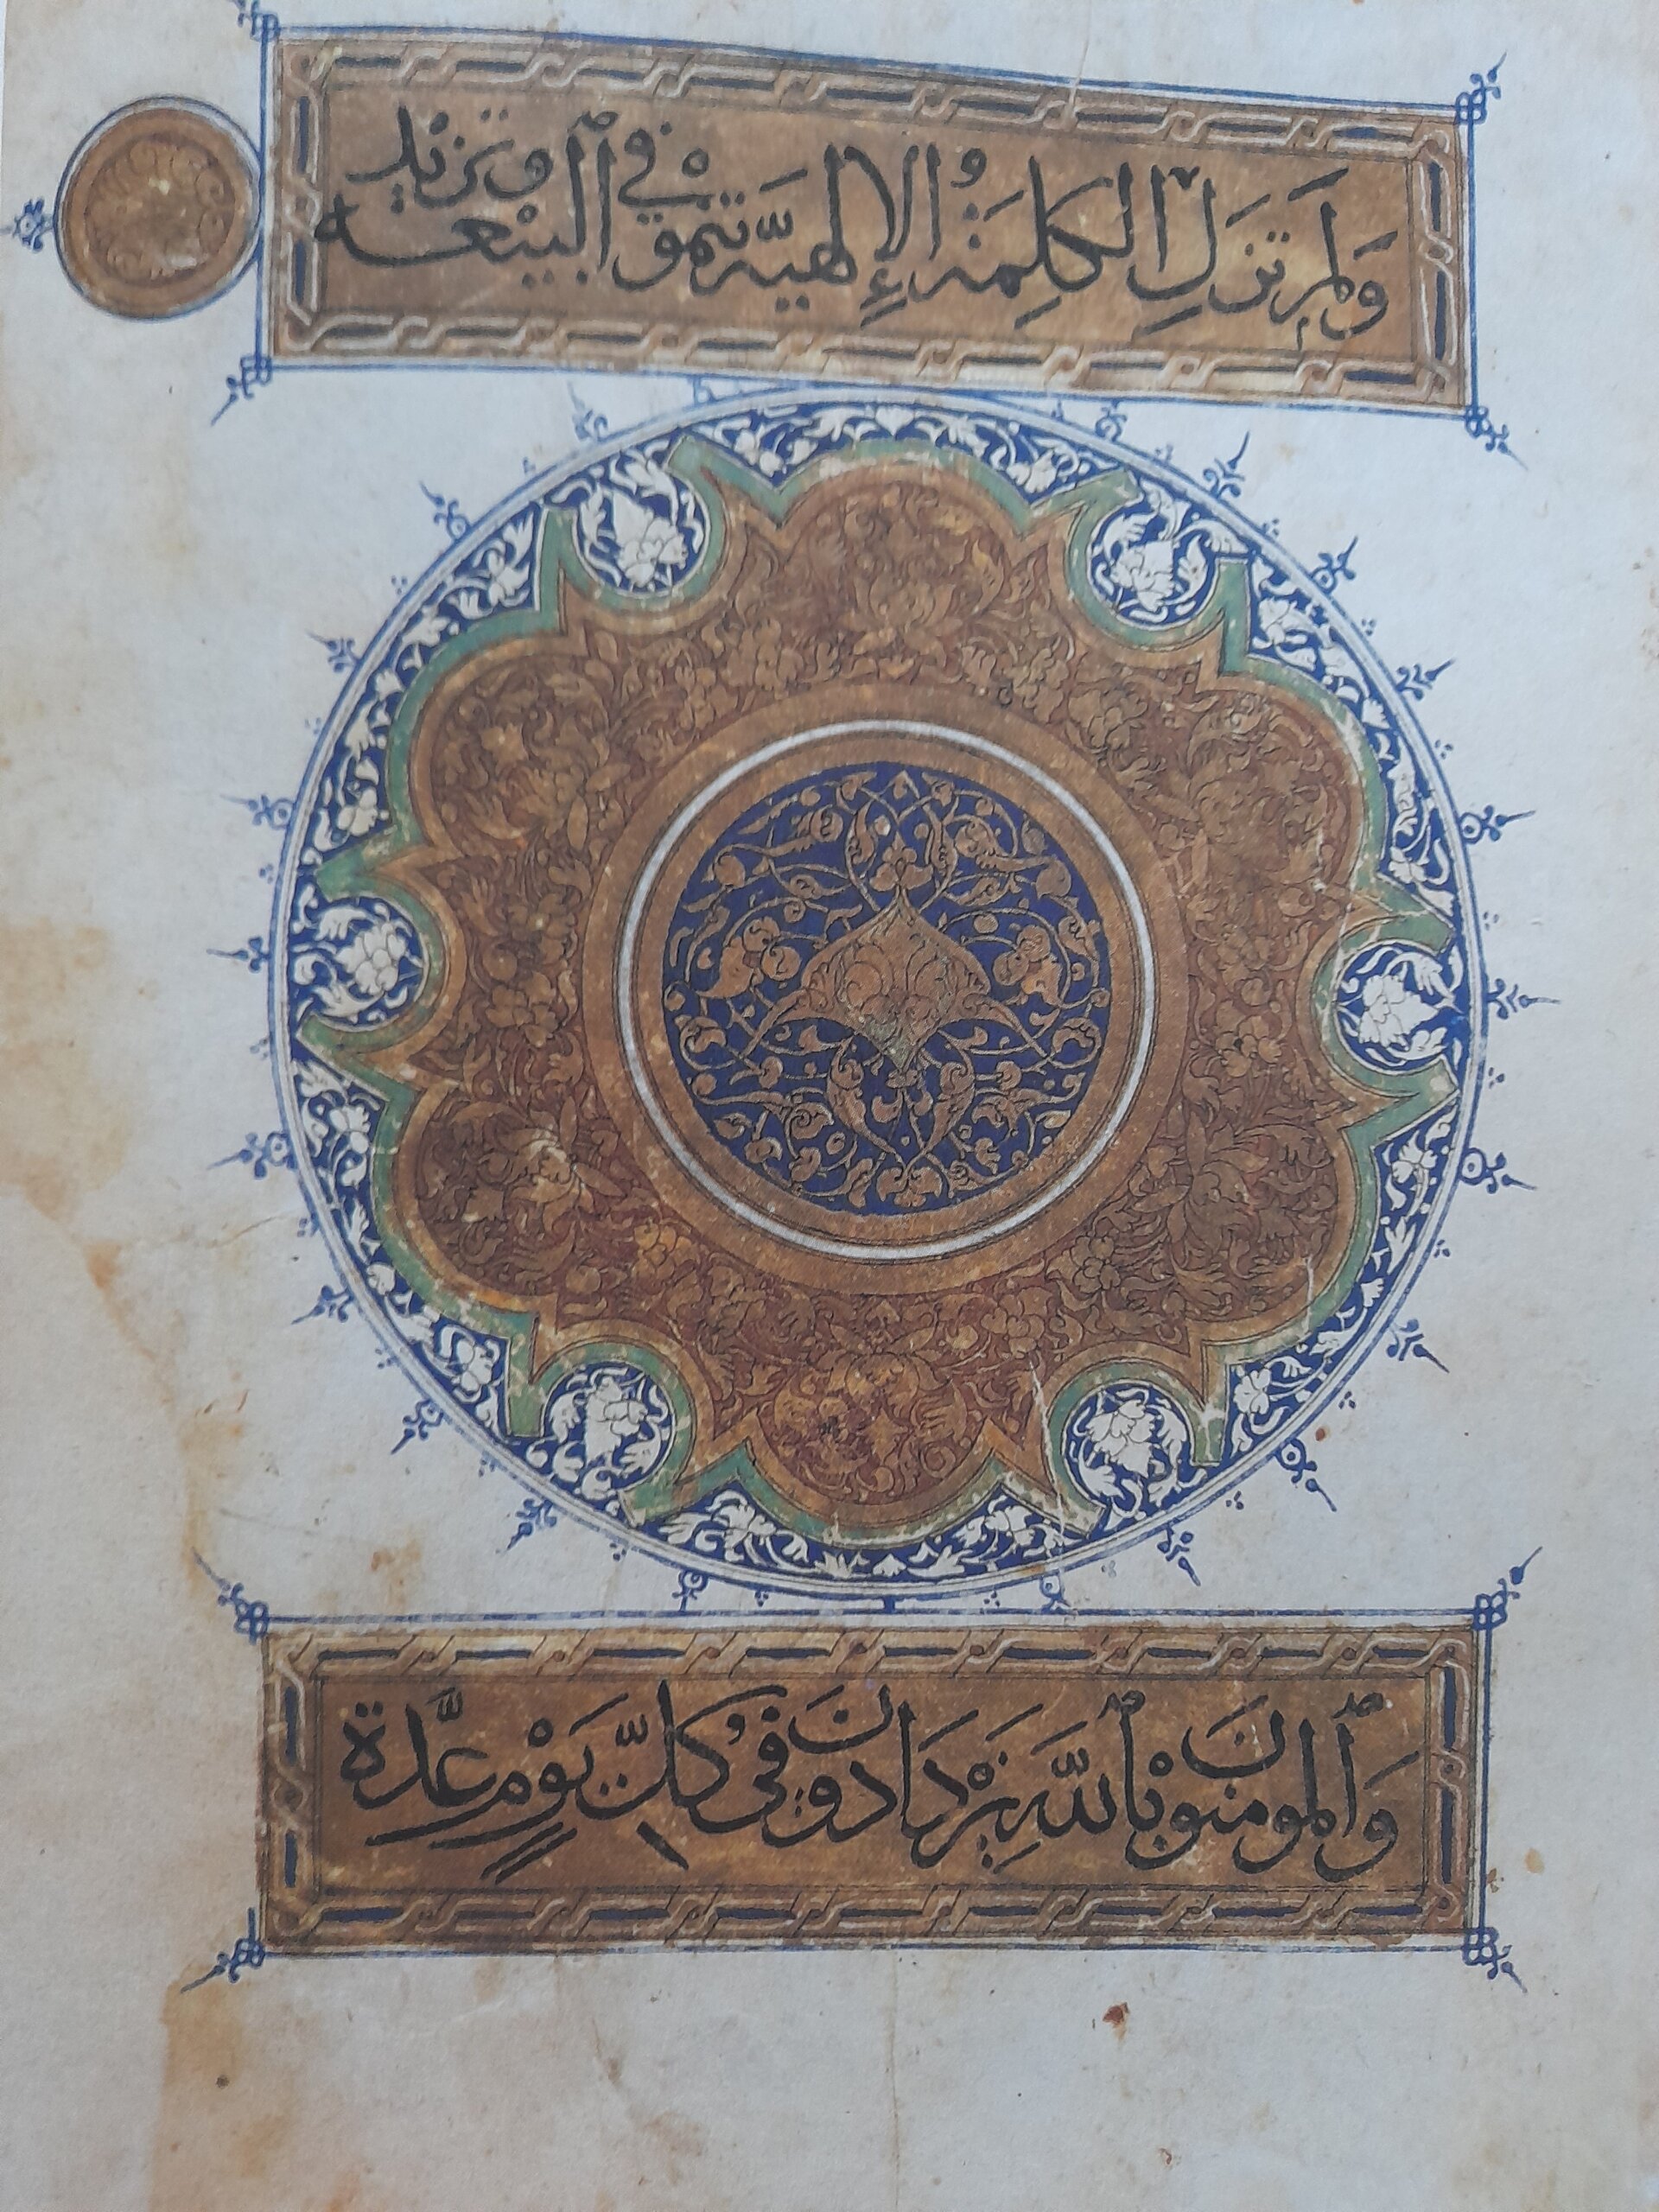 وَلَمْ تزَلِ الكَلِمَةُ الإِلهيَّة تنموْ في اَلبيْعه وتزيْد
وَاَلمومنونَ باللهِ يَزْدَادونَ في كلِّ يَوْمٍ عدَّة